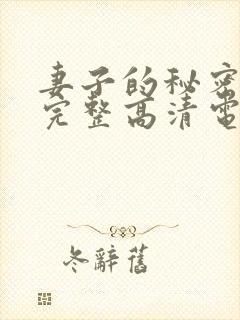 妻子的秘密
完整高清電
冬辭舊